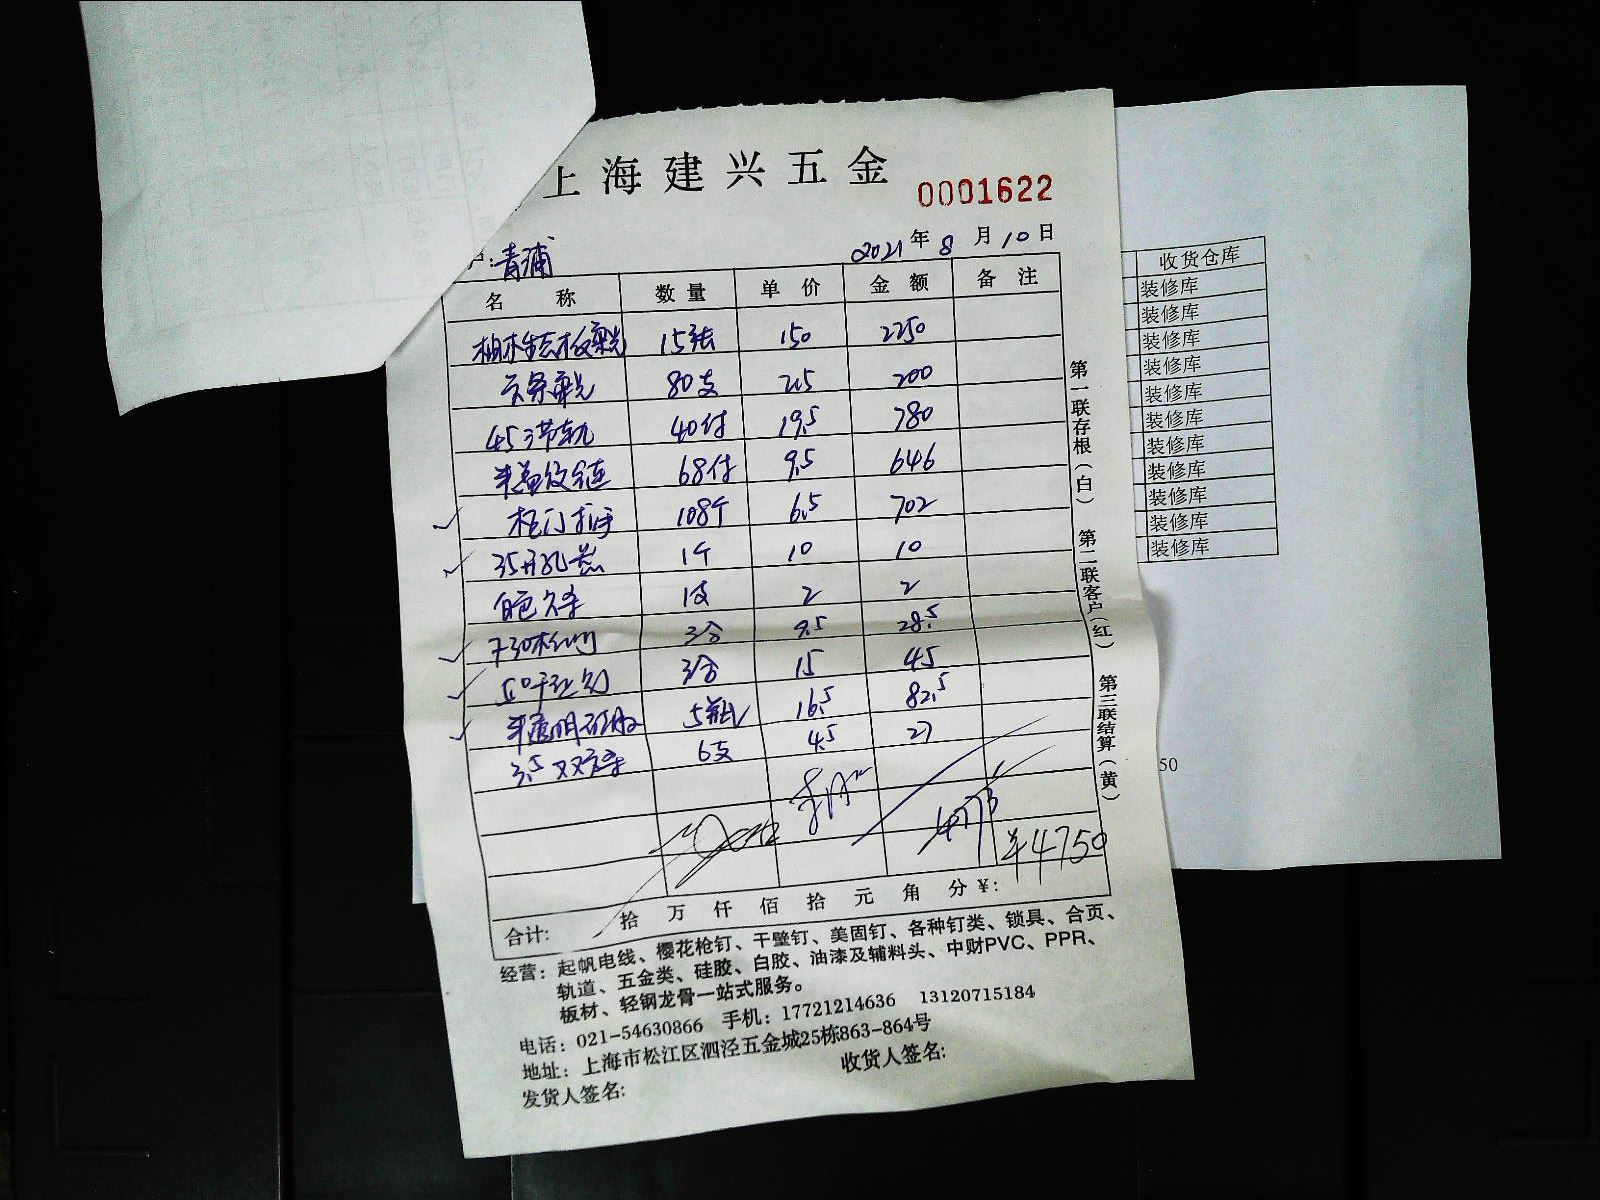 上海建兴五金
0001622
户:青浦
2021年8月10日
名称 数量 单价 金额 备注
柚木生态板 15张 150 2250
80支 2.5 200
45三节轨 40付 19.5 780
半盖铰链 68付 9.5 646
柜门拉手 108个 6.5 702
35开孔器 1个 10 10
白色 1支 2 2
730 3合 9.5 28.5
50干 3合 15 45
半透明 5瓶 16.5 82.5
3.5 6支 4.5 27
¥4750
合计: 拾万仟佰拾元角分¥:
经营:起帆电线、樱花枪钉、干壁钉、美固钉、各种钉类、锁具、合页、
轨道、五金类、硅胶、白胶、油漆及辅料头、中财PVC、PPR、
板材、轻钢龙骨一站式服务。
电话:021-54630866 手机:17721214636 13120715184
地址:上海市松江区泗泾五金城25栋863-864号
发货人签名: 收货人签名:
第一联存根(白) 第二联客户(红) 第三联结算(黄)
收货仓库
装修库
装修库
装修库
装修库
装修库
装修库
装修库
装修库
装修库
装修库
装修库
50